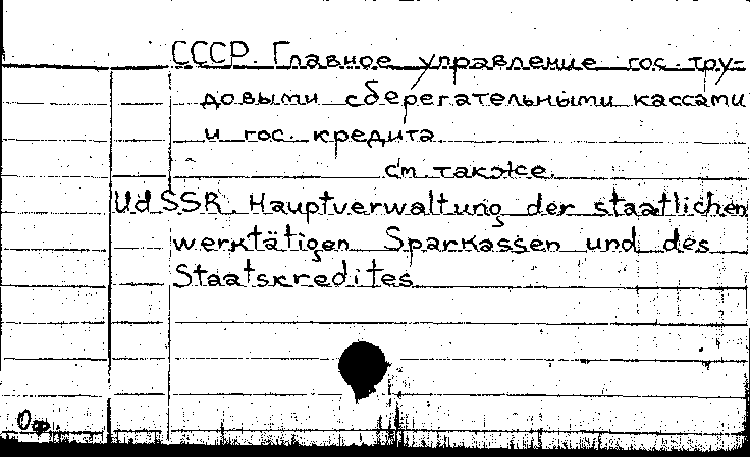 СССР. Главное управление гос. тру-
довыми сберегательными кассами
и гос. кредита
см. также
UdSSR. Hauptverwaltung der staatlichen
werktätigen Sparkassen und des
Staatskredites
Оф.